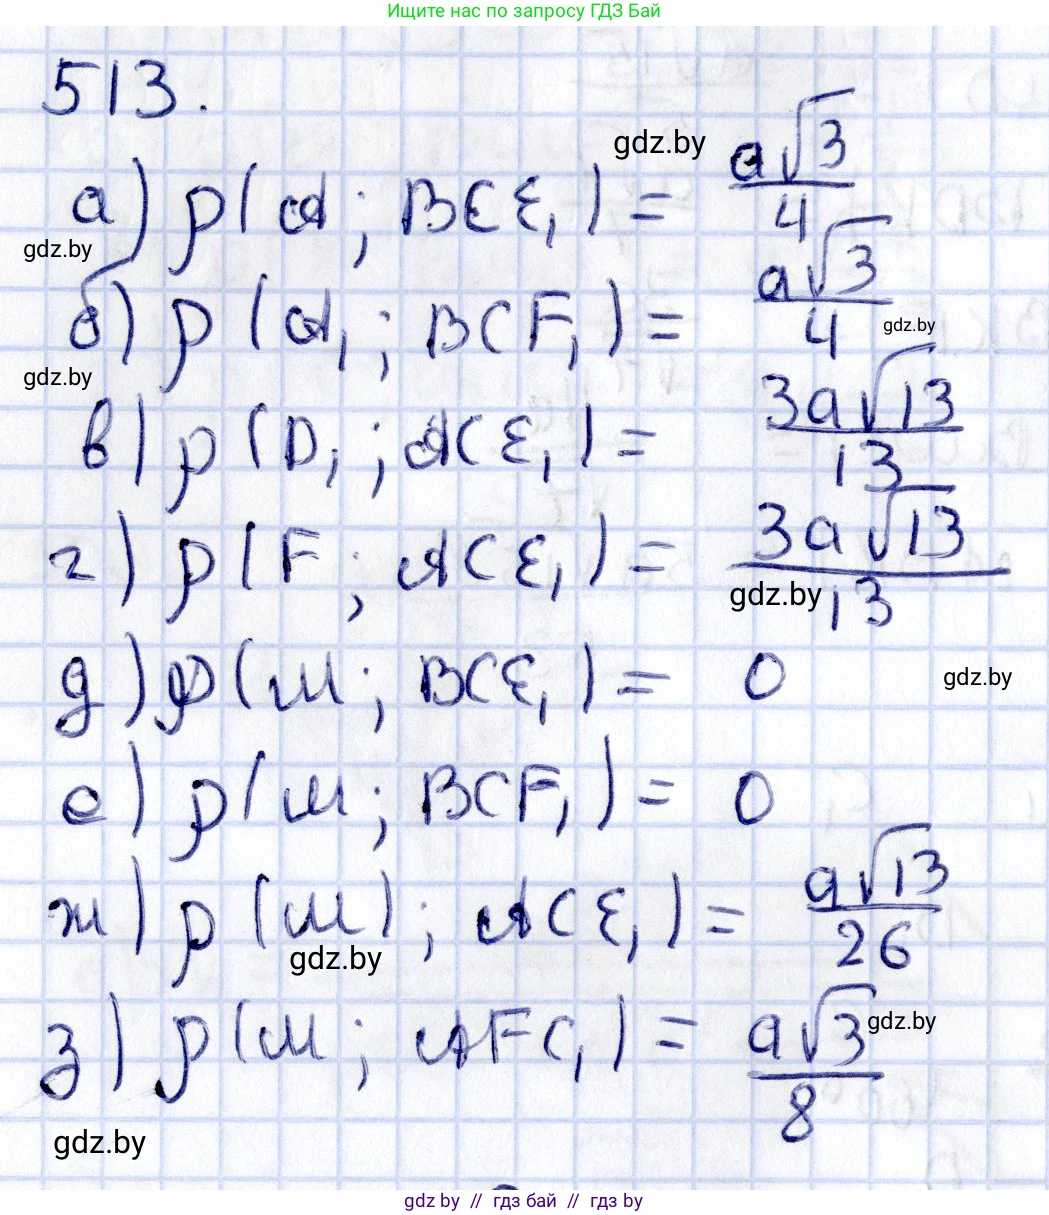 Ищите нас по запросу ГДЗ Бай
513.
gdz.by
а) ρ(A; BCE₁) = a√3/4
gdz.by
б) ρ(A₁; BCF₁) = a√3/4
gdz.by
gdz.by
в) ρ(D₁; ACE₁) = 3a√13/13
г) ρ(F; ACE₁) = 3a√13/13
gdz.by
д) ρ(M; BCE₁) = 0
gdz.by
е) ρ(M; BCF₁) = 0
ж) ρ(M); ACE₁) = a√13/26
gdz.by
з) ρ(M; AFC₁) = a√3/8
gdz.by
gdz.by
gdz by // гдз бай // гдз by